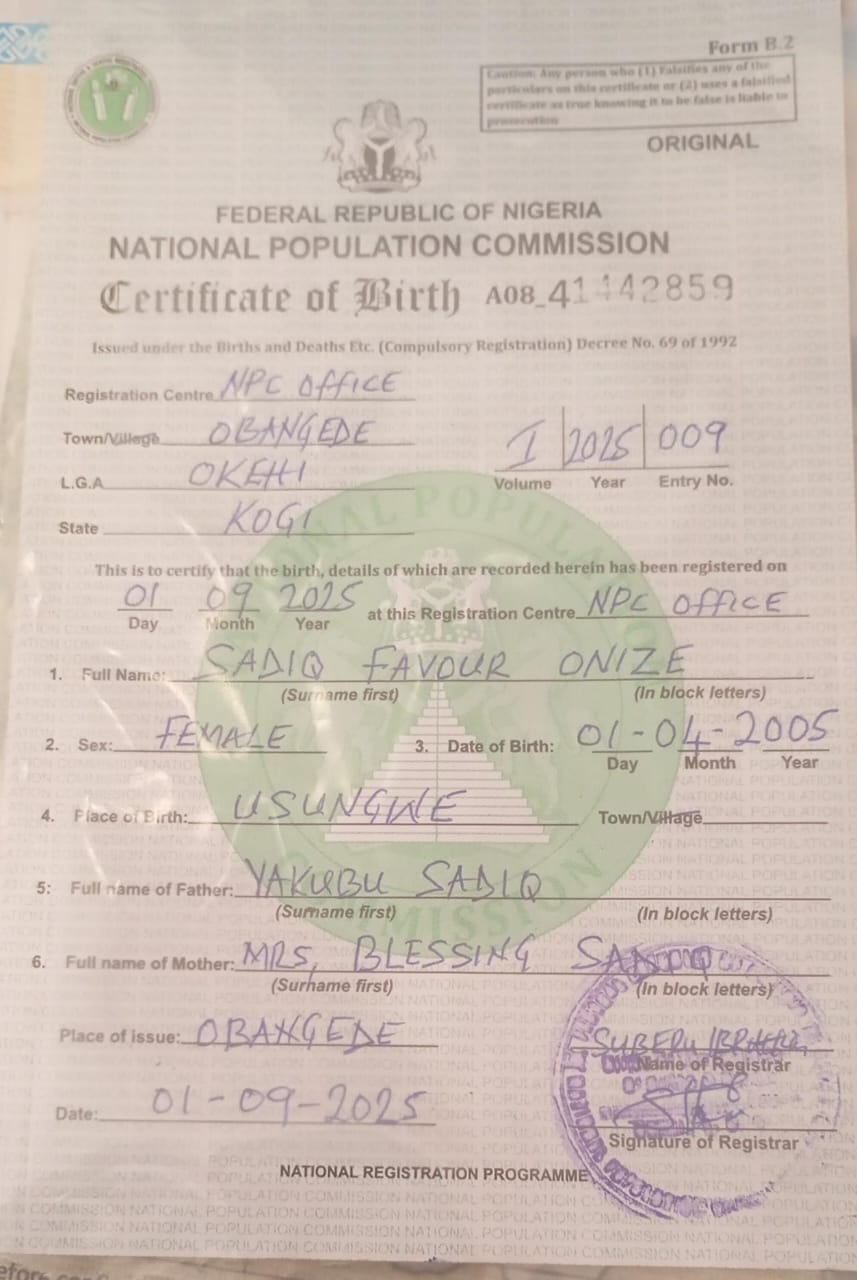 Form B.2
Caution: Any person who (1) Falsifies any of the
particulars on this certificate or (2) uses a falsified
certificate as true knowing it to be false is liable to
prosecution
ORIGINAL
FEDERAL REPUBLIC OF NIGERIA
NATIONAL POPULATION COMMISSION
Certificate of Birth A08_41442859
Issued under the Births and Deaths Etc. (Compulsory Registration) Decree No. 69 of 1992
Registration Centre NPC OFFICE
Town/Village OBANGEDE
I 2025 009
L.G.A OKEHI
Volume Year Entry No.
State KOGI
This is to certify that the birth, details of which are recorded herein has been registered on
01 09 2025 at this Registration Centre NPC OFFICE
Day Month Year
1. Full Name: SADIQ FAVOUR ONIZE
(Surname first) (In block letters)
2. Sex: FEMALE 3. Date of Birth: 01-04-2005
Day Month Year
4. Place of Birth: USUNGWE Town/Village
5: Full name of Father: YAKUBU SADIQ
(Surname first) (In block letters)
6. Full name of Mother: MRS, BLESSING SADIQ
(Surname first) (In block letters)
Place of issue: OBANGEDE
SUBERU
Name of Registrar
Date: 01-09-2025
Signature of Registrar
NATIONAL REGISTRATION PROGRAMME